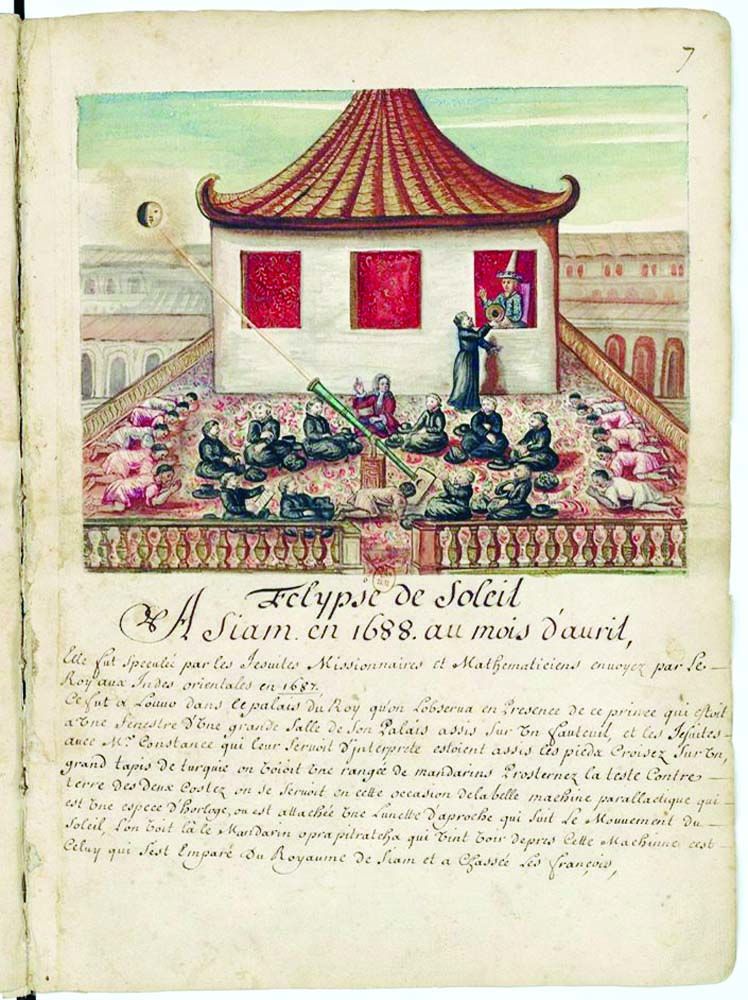 7
Eclypse de Soleil
A Siam. en 1688. au mois d'auril,
Elle fut speculée par les Jesuites Missionnaires et Mathematiciens envoyez par Le
Roy aux Indes orientales en 1687.
Ce fut a Louuo dans le palais du Roy qu'on L'obserua en Presence de ce prince qui estoit
a Vne fenestre d'Vne grande Salle de Son Palais assis Sur Vn fauteuil, et les Jesuites
auec Mr. Constance qui leur Seruoit d'interprete estoient assis les pieds Croisez Sur Vn,
grand tapis de turquie on Voioit Vne rangée de mandarins Prosternez la teste Contre
terre des Deux Costez on se Seruoit en cette occasion de la belle machine parallactique qui
est Vne espece d'horloge, ou est attachée Vne Lunette d'aproche qui Suit Le Mouuement du
Soleil, L'on Voit là le Mandarin oprapitratcha qui Vint Voir de pres Cette Machinne c'est
Celuy qui S'est Emparé Du Royaume de Siam et a Chassée Les françois,